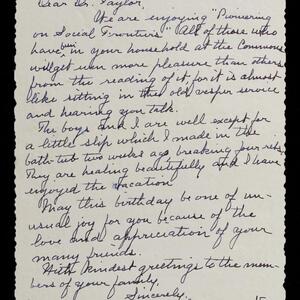 Dear Dr. Taylor,
We are enjoying "Pioneering
on Social Frontiers" All of those who
have been in your household at the Commons
will get even more pleasure than others
from the reading of it, for it is almost
like sitting in the old vesper service
and hearing you talk.
The boys and I are well except for
a little slip which I made in the
bath-tub two weeks ago breaking four ribs.
They are healing beautifully and I have
enjoyed the vacation.
May this birthday be one of un-
usual joy for you because of the
love and appreciation of your
many friends.
With kindest greetings to the mem-
bers of your family,
Sincerely,